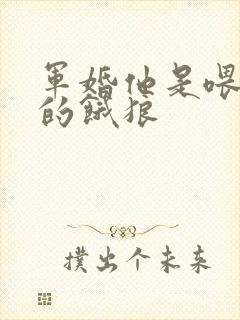 軍婚他是喂
的餓狼
撲出个未东